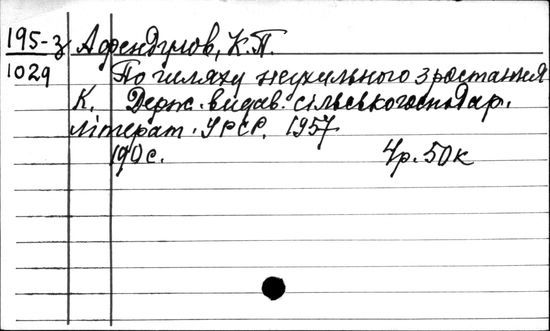 195-3 Афендулов, К.П.
1029 По шляху неухильного зростання
К. Держ. видав. сільськогосподар.
літерат. УРСР. 1957
190 с. 4р. 50к